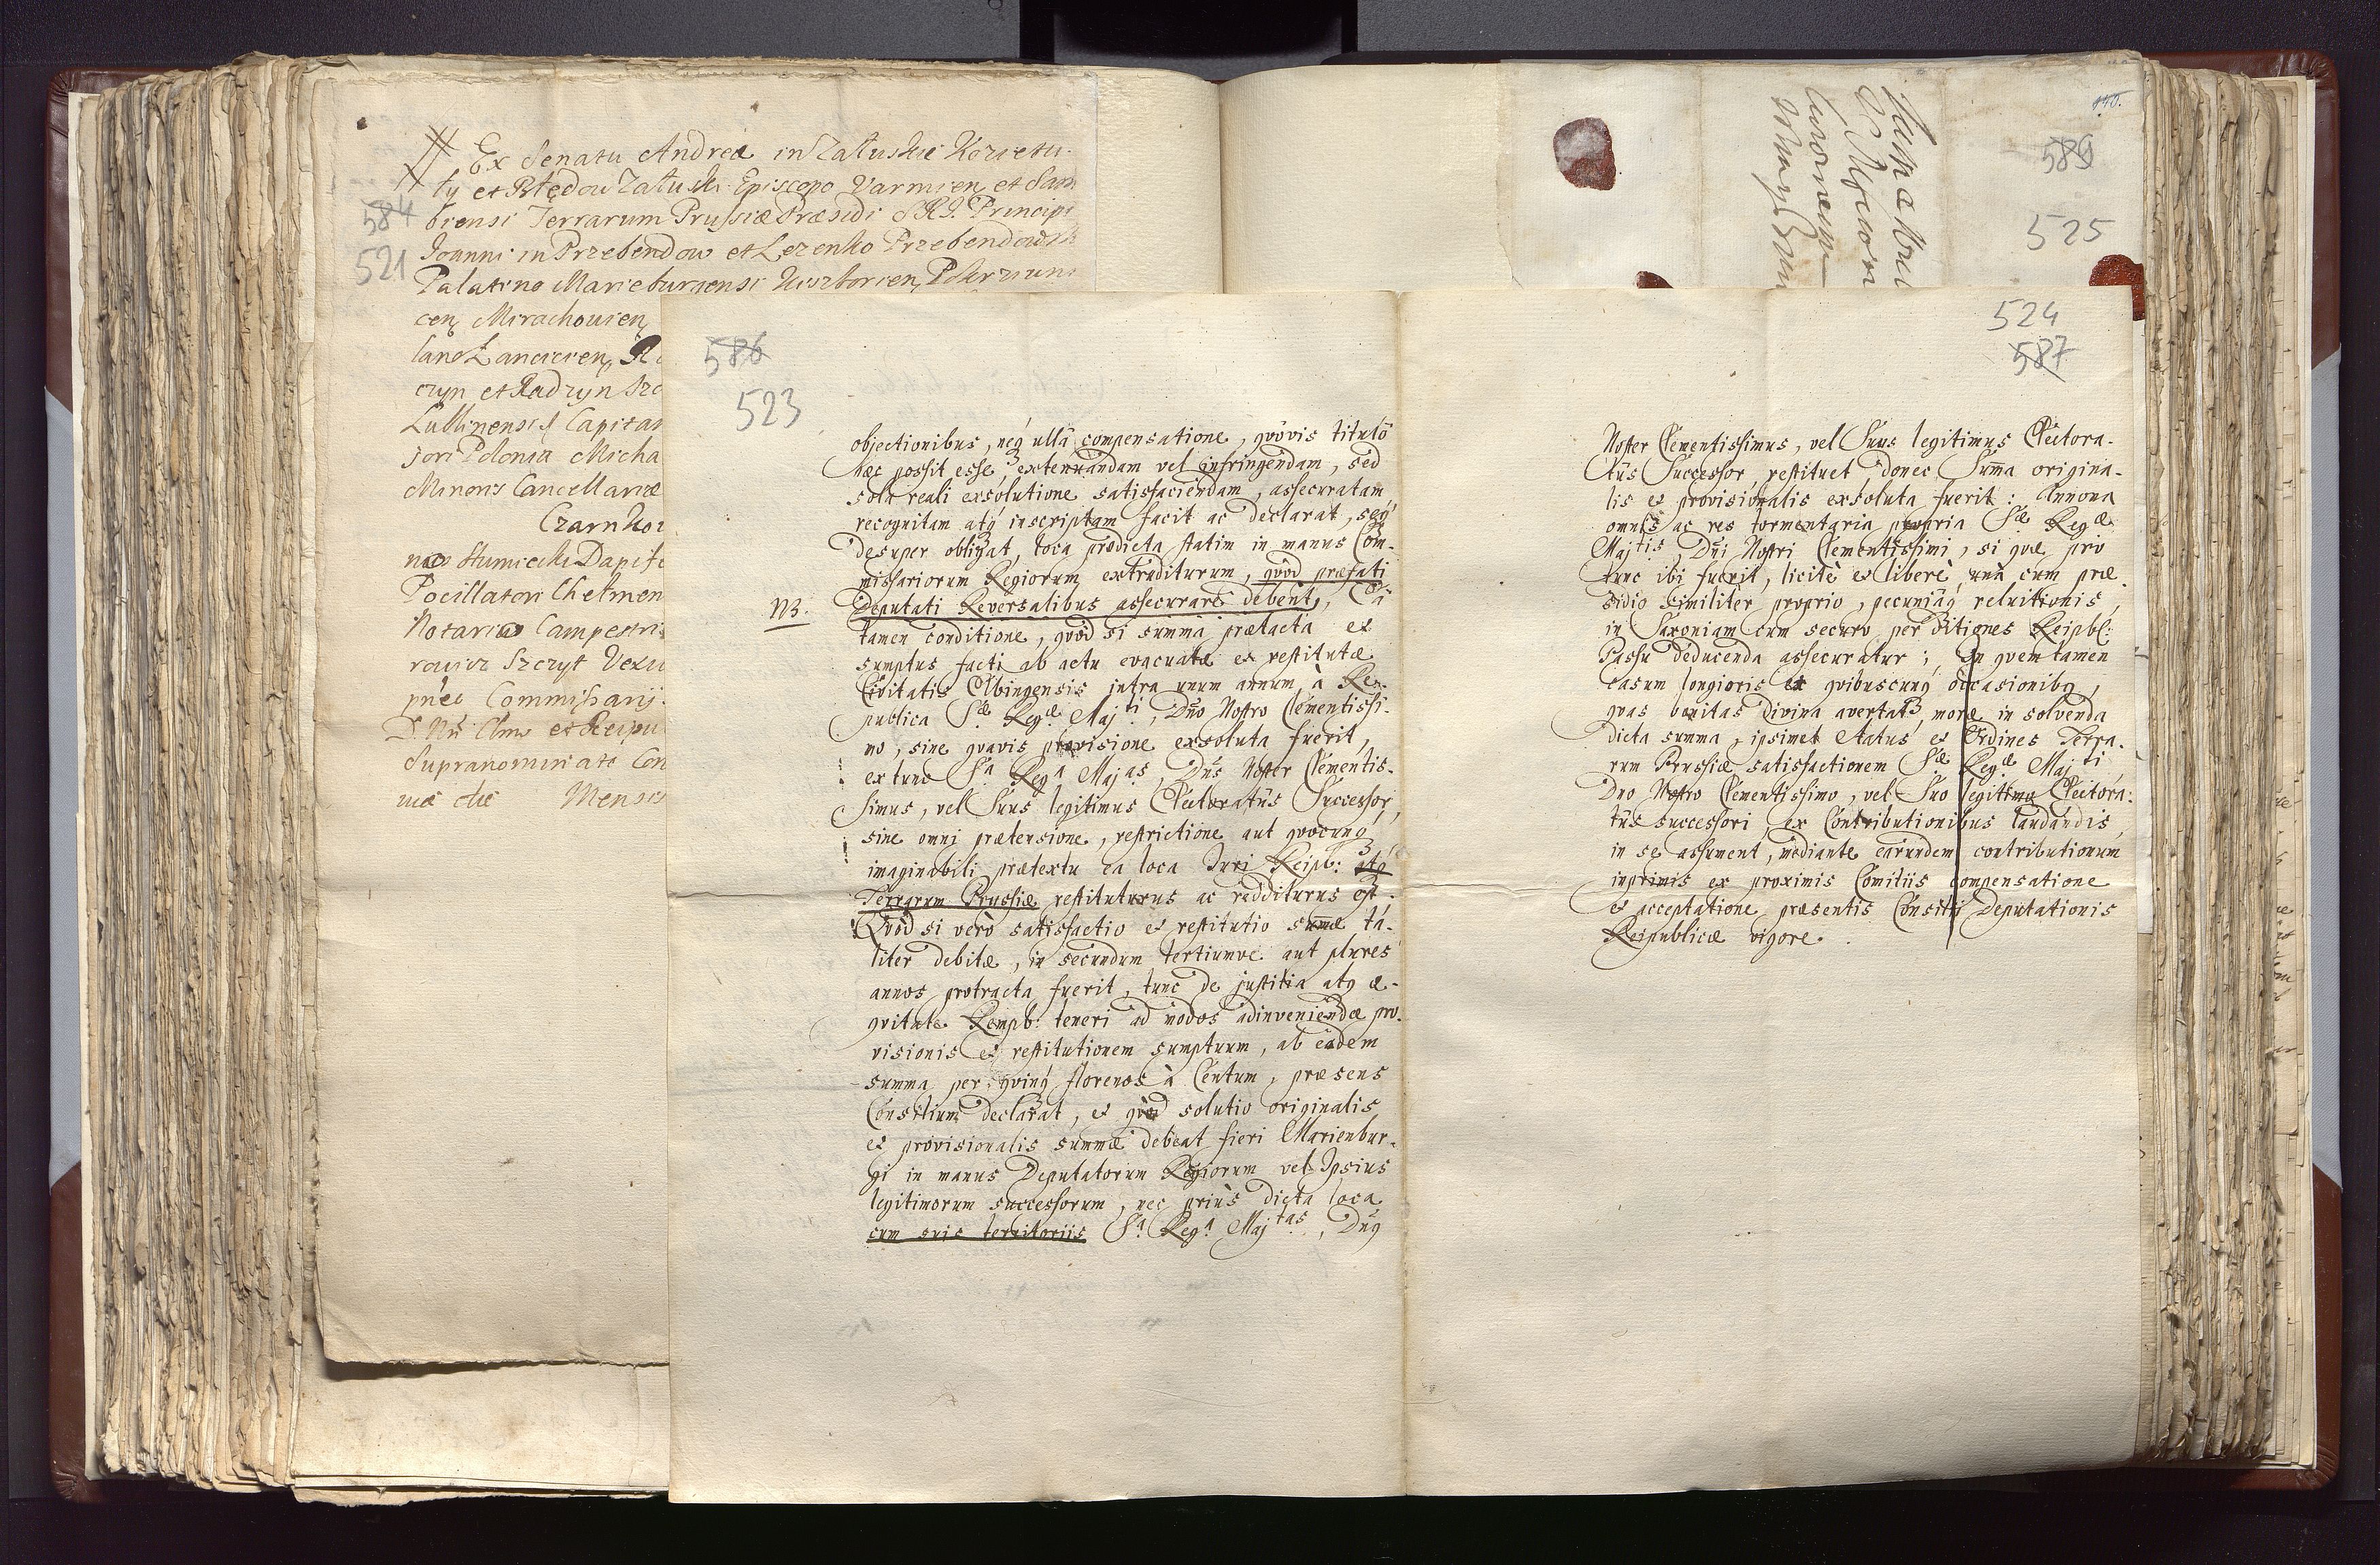 Ex Senatu Andreæ in Załuskie
ty et Błędow Załuski Episcopo Varmien et Sam
584 biensi Terrarum Prussiæ Præsidi S.R.I. Principi
521 Joanni in Przebendow et Lezenko Przebendows
Palatino Marieburgensi
cen Mirachovien
lano Lancicien
czyn et Radzyn
Lublinensi Capitan
jori Polonia Micha
Minoris Cancellariæ
Czarnko
Dapife
Pocillatori Chelmen
Notario Campestri
rowicz Szczyt Vexi
Commissarij
D. Nri Clmi et Reipu
Supranominati Con
Mensis
586
523
objectionibus, neq ullâ compensatione, qvôvis titulô
hæc possit esse, extenuandam vel infringendam, sed
sola reali exsolutione satisfaciendam, assecuratam
recognitam atq inscriptam facit ac declarat, seq
desuper obligat, loca prædicta statim in manus Com-
missariorum Regiorum extraditurum, qvòd præfati
NB. Deputati Reversalibus assecurare debent, Eâ
tamen conditione, qvòd si summa prætacta et
sumptus facti ab actu evacuatæ et restitutæ
Civitatis Elbingensis intra unum annum à Re-
publica Sæ Regæ Majti, Dno Nostro Clementissi-
mo, sine qvavis provisione exsoluta fuerit,
ex tunc Sa Rega Majas, Dns Noster Clementis-
simus, vel Suus legitimus Electoratûs Successor,
sine omni prætensione, restrictione aut qvocunq
imaginabili prætextu ea loca Juri Reipb: atq
Terrarum Prussiæ restituturus ac redditurus est.
Qvòd si verò satisfactio et restitutio sumæ ta-
liter debitæ, in secundum tertiumve aut plures
annos protracta fuerit, tunc de justitia atq æ-
qvitate Rempb: teneri ad modos adinveniendæ pro-
visionis et restitutionem sumptuum, ab eadem
summa per qvinq florenos à Centum, præsens
Consilium declarat, et qvod solutio originalis
et provisionalis summæ debeat fieri Marienbur-
gi in manus Deputatorum Regiorum vel Ipsius
legitimorum successorum, nec priùs dicta loca
cum suis territoriis Sa Rega Majtas, Dnq
140.
589
525
524
587
Noster Clementissimus, vel Suus legitimus Electora-
tûs Successor, restituet, donec Suma origina-
lis et provisionalis exsoluta fuerit: Annona
omnis ac res tormentaria propria Sæ Regæ
Majtis, Dni Nostri Clementissimi, si qvæ pro
tunc ibi fuerit, licitè et liberè, unà cum præ-
sidio similitèr proprio, pecuniâq reluitionis,
in Saxoniam cum securo per ditiones Reipbl:
Passu deducenda assecuratur; In qvem tamen
casum longioris ex qvibuscunq occasionibq,
qvas bonitas Divina avertat, moræ in solvenda
dicta summa, ipsimet Status et Ordines Terra-
rum Prussiæ satisfactionem Sæ Regæ Majti
Dno Nostro Clementissimo, vel Suo legitimo Electora-
tûs successori, ex Contributionibus laudandis,
in se assument, mediante earundem contributionum
inprimis ex proximis Comitiis compensatione
et acceptatione præsentis Consilii Deputationis
Reipublicæ vigore.